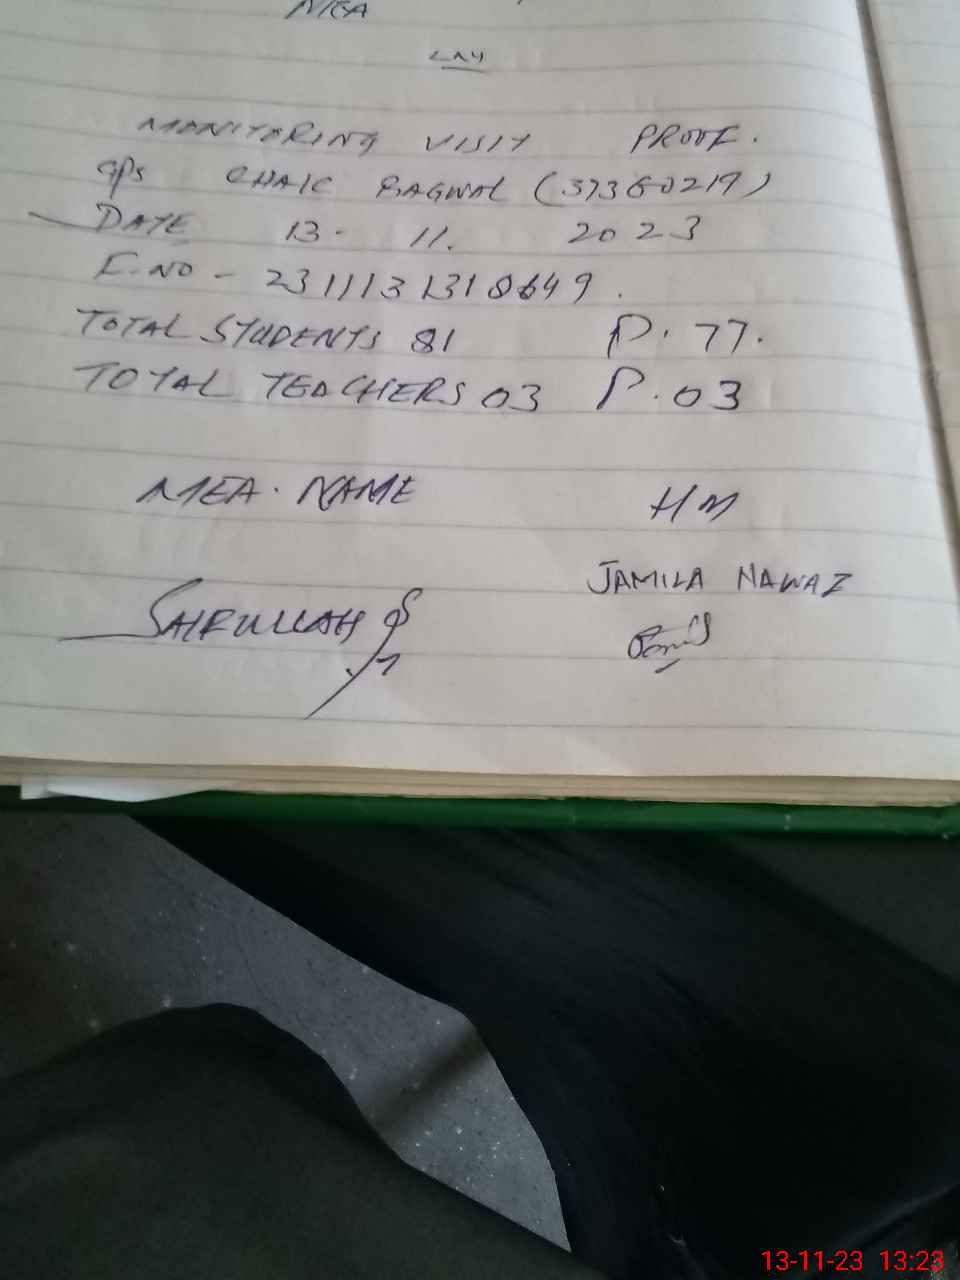 MEA
MONITORING VISIT PROOF.
GPS CHAIC BAGWAL (37360219)
DATE 13. 11. 2023
E.NO - 2311131318649.
TOTAL STUDENTS 81 P. 77.
TOTAL TEACHERS 03 P. 03
MEA. NAME HM
JAMILA NAWAZ
SAIFULLAH
13-11-23 13:23